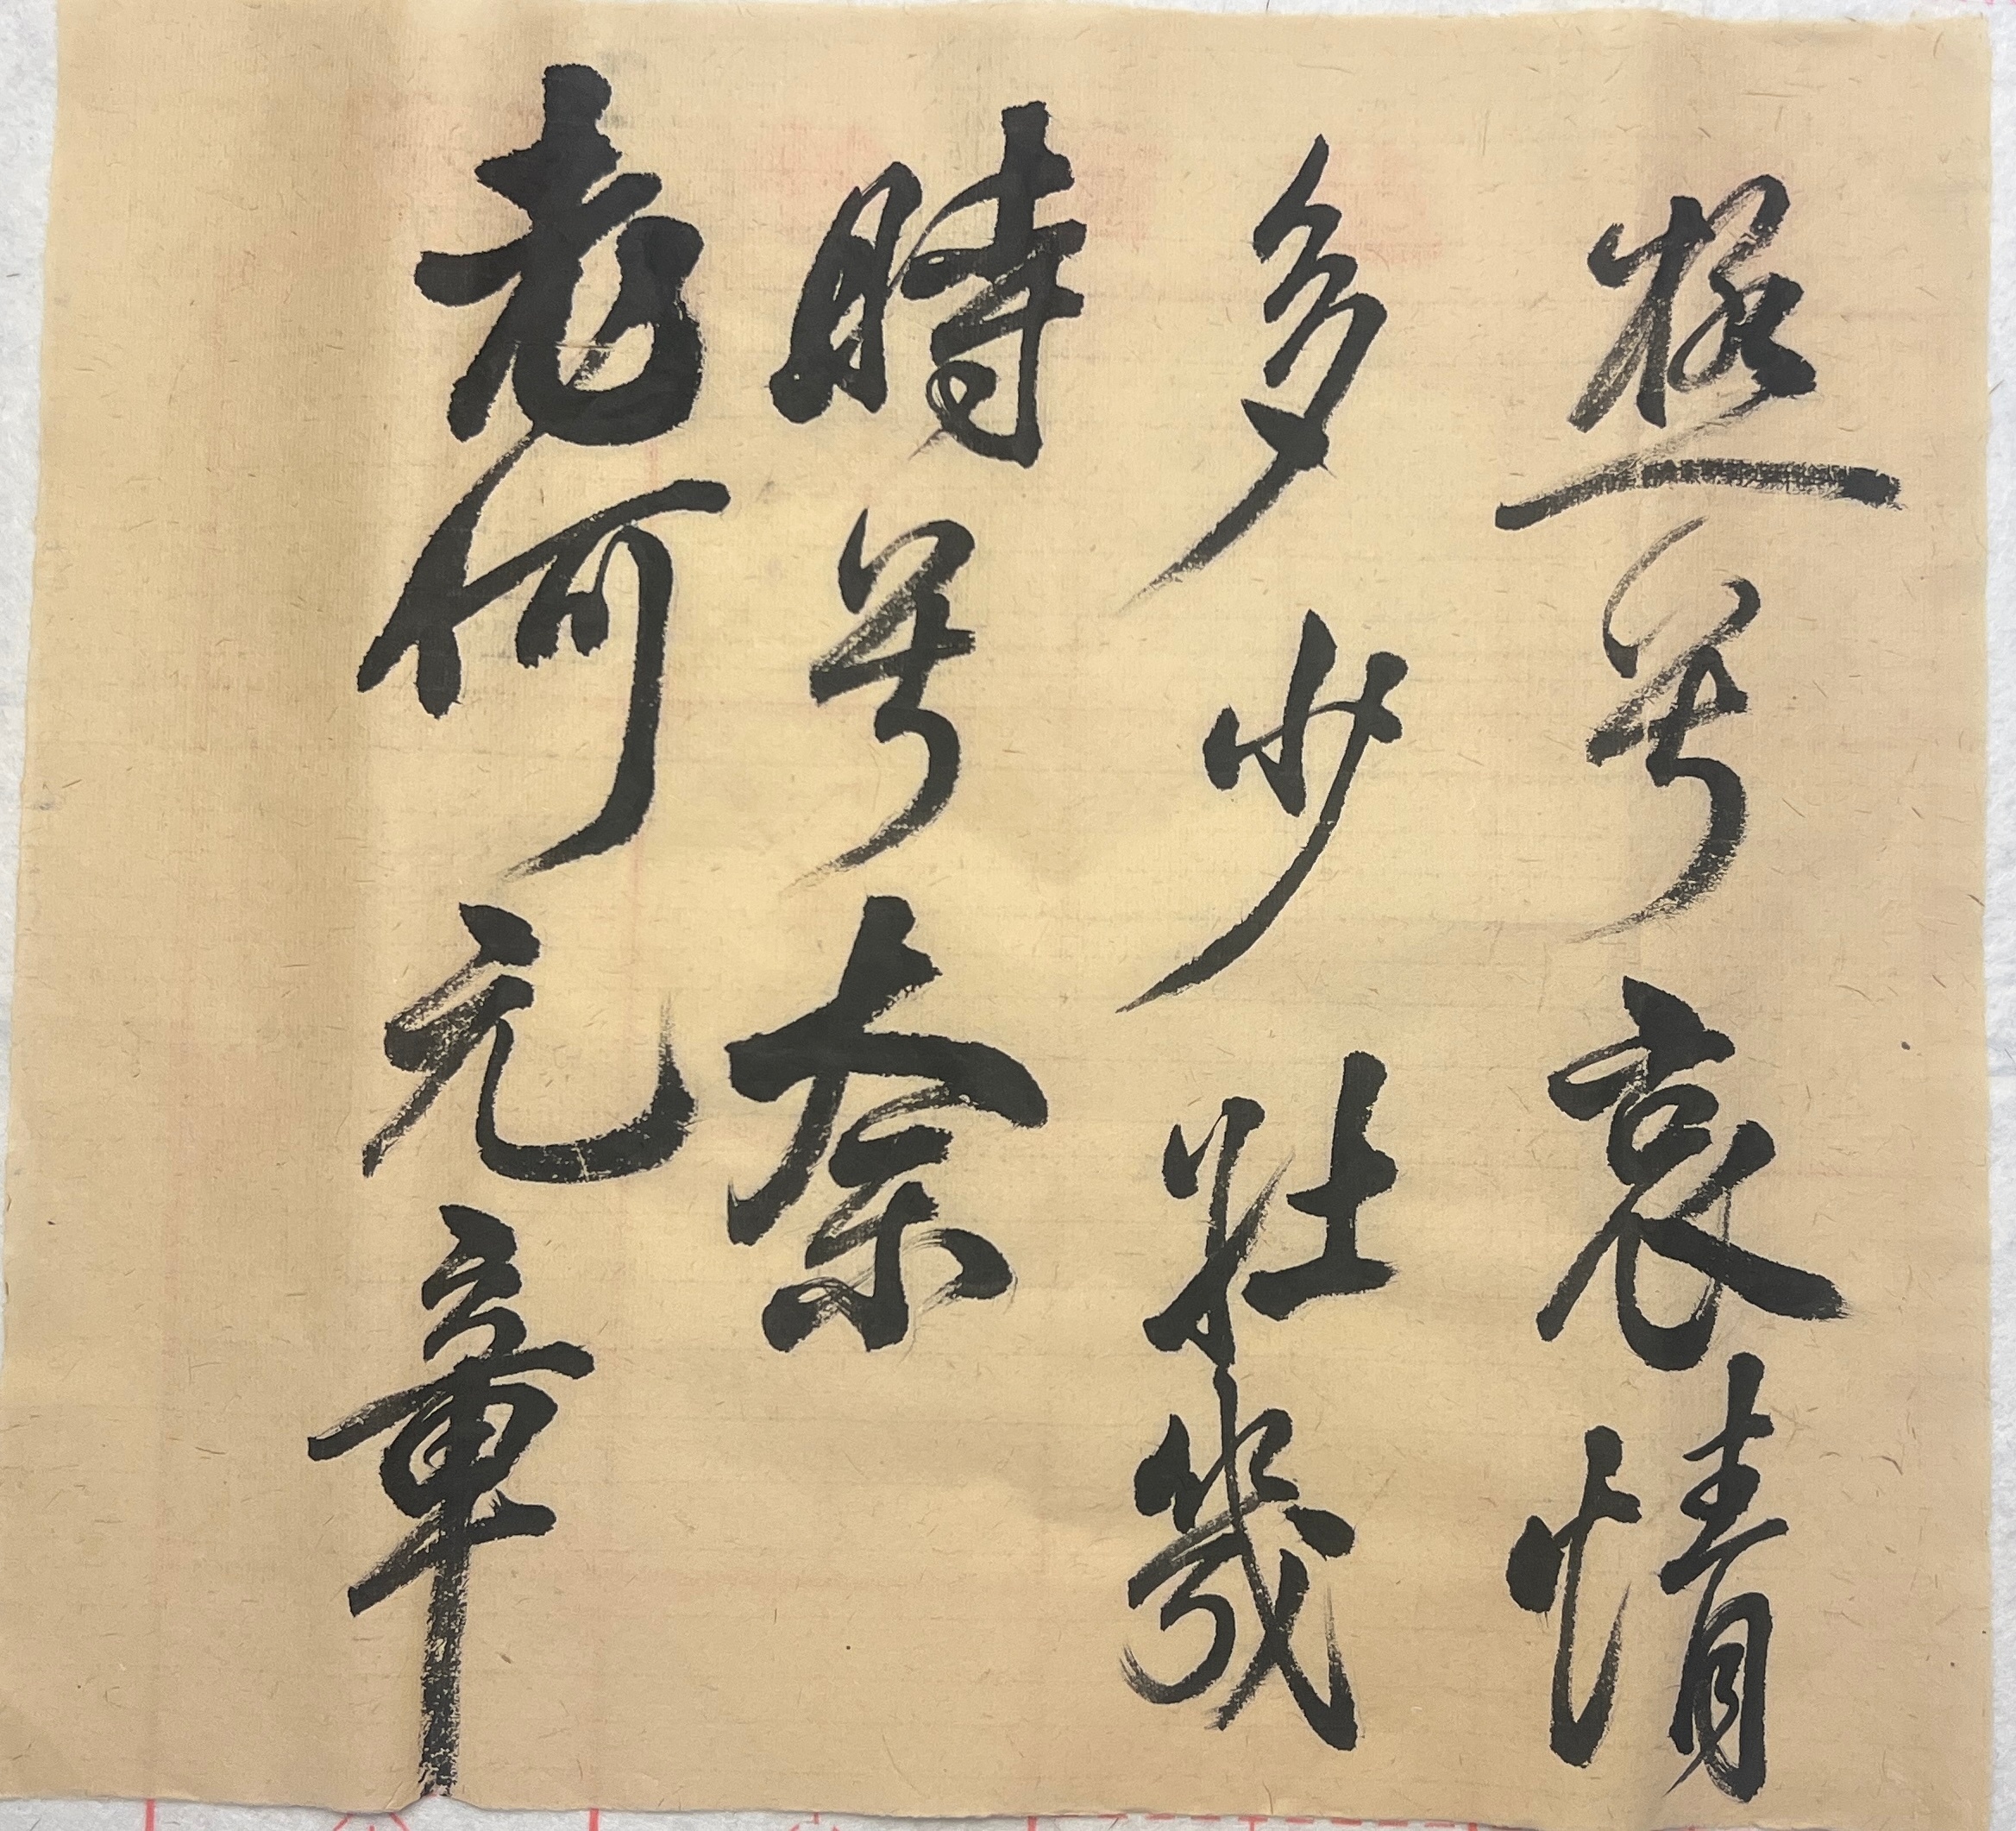 極兮哀情
多少壯幾
時兮奈
老何元章